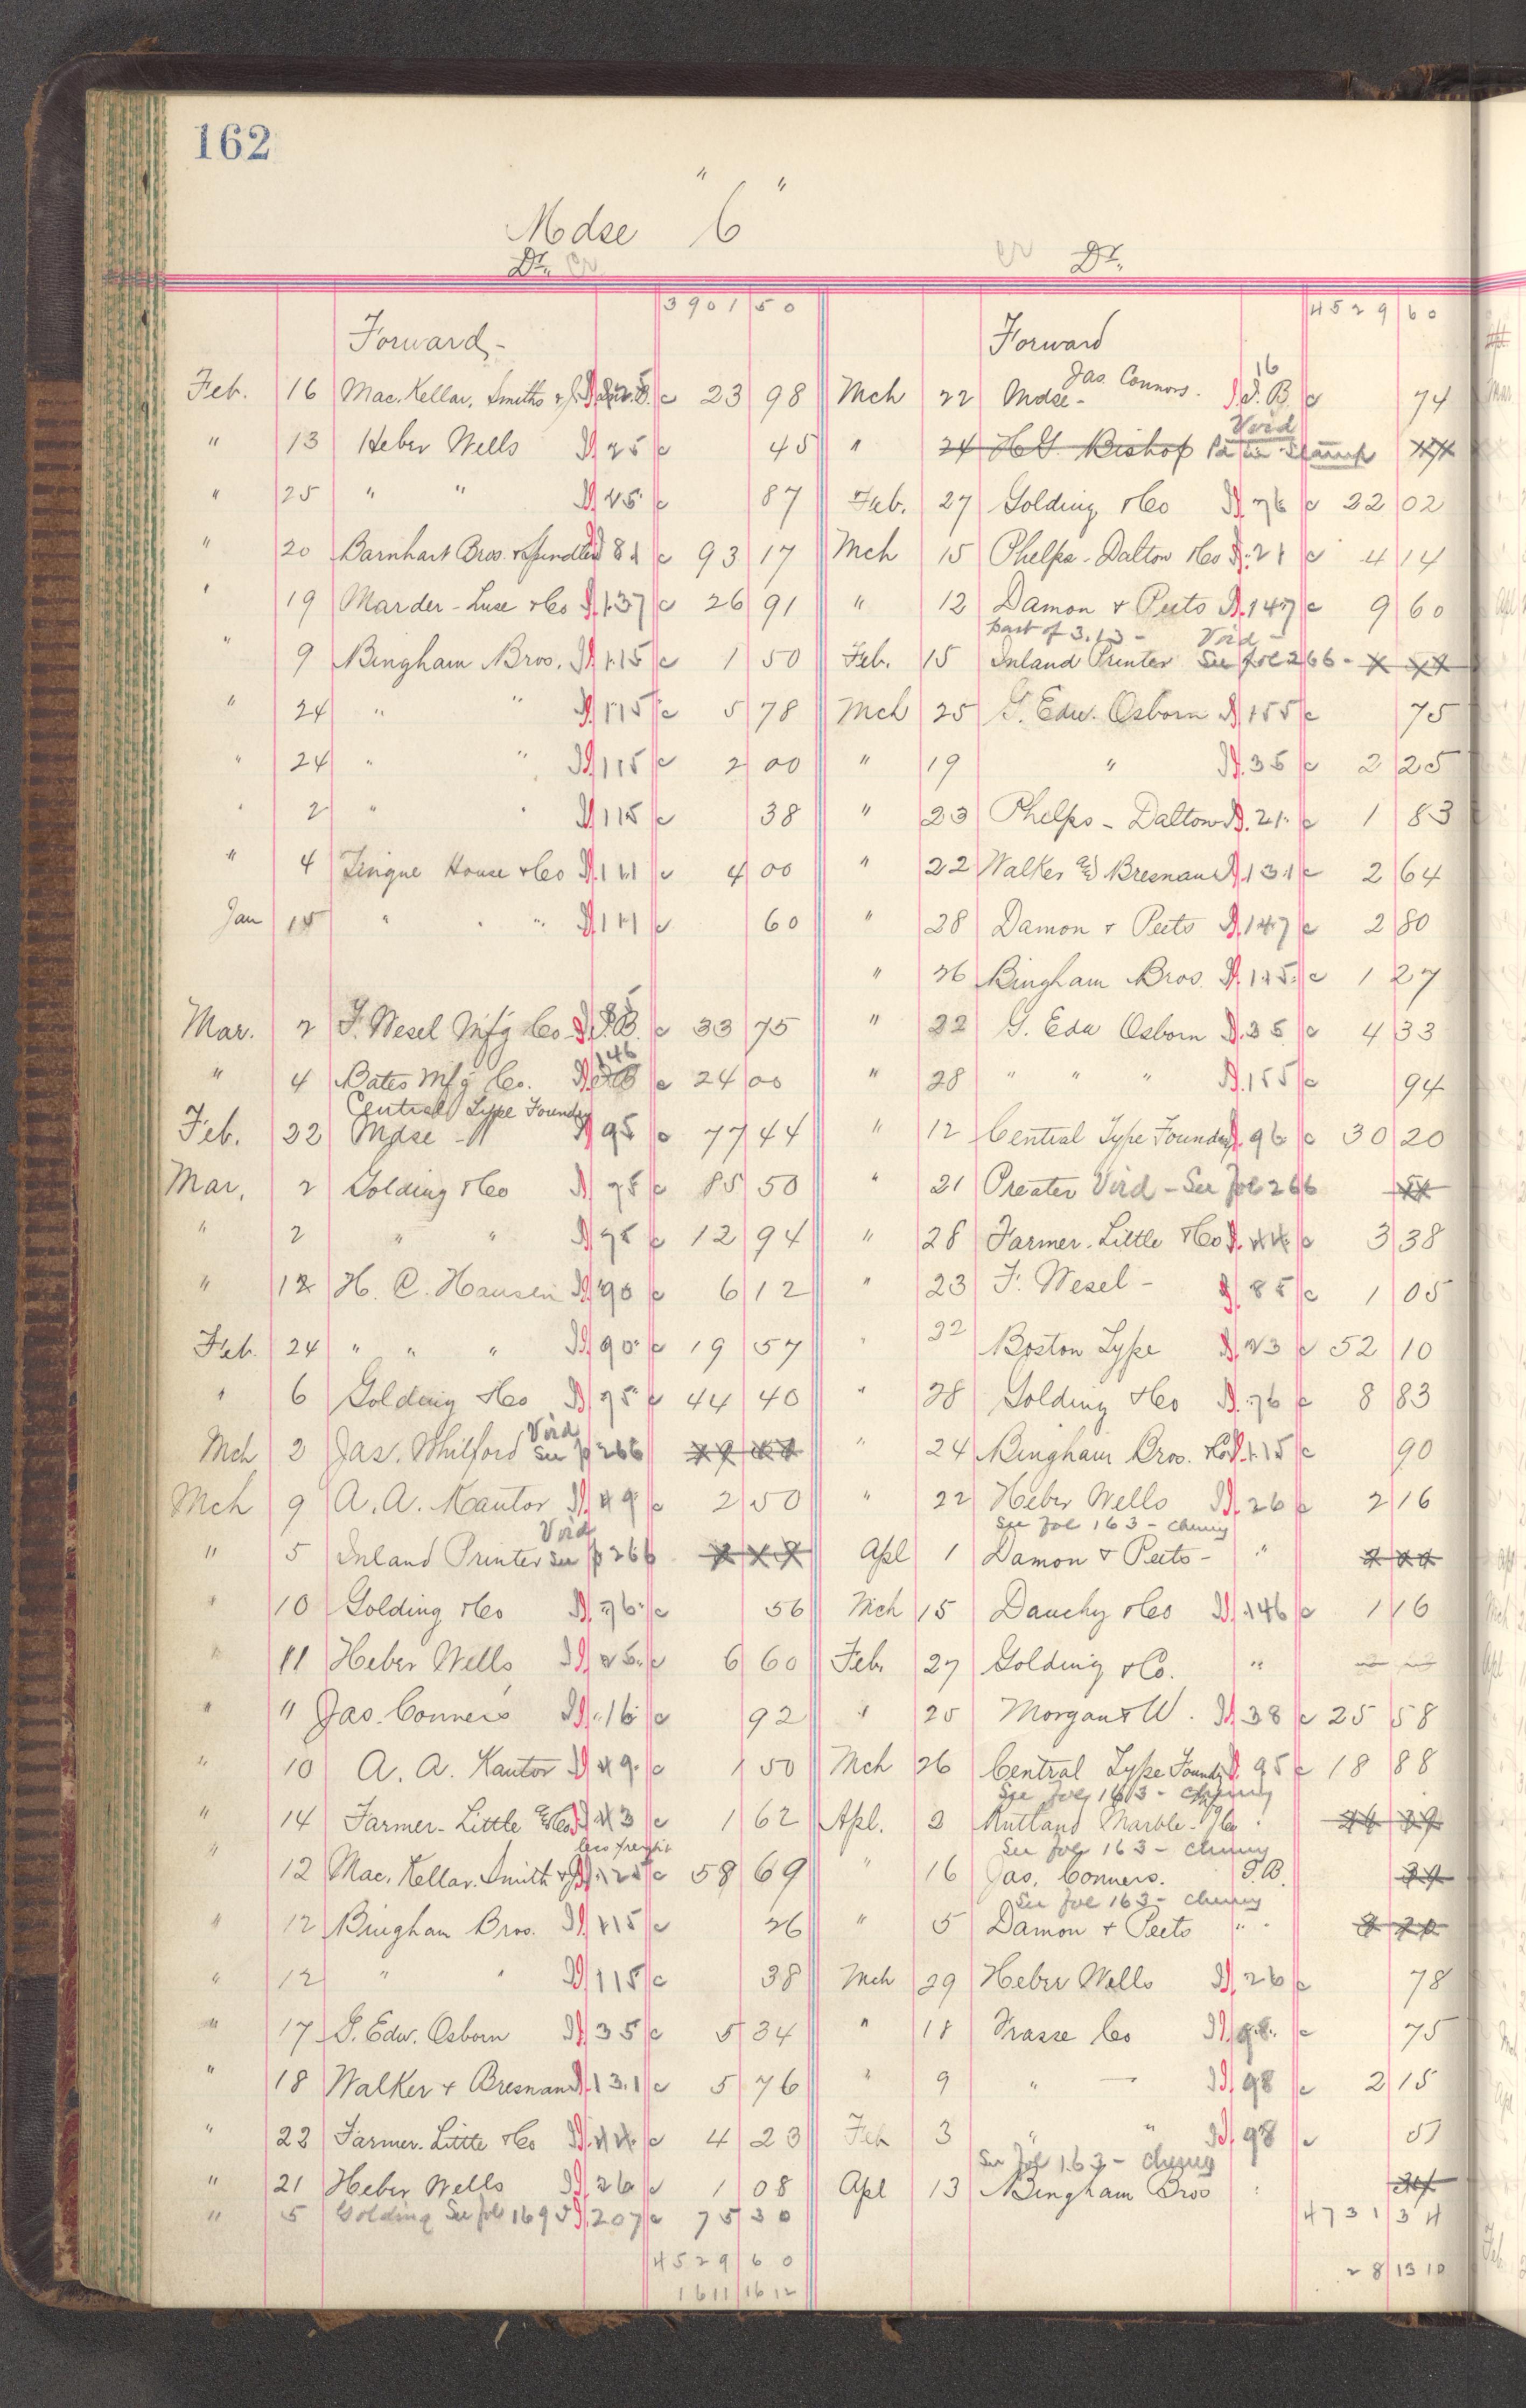 162
Mdse " 6 "
Dr. Cr
3901 50
Forward,-
Feb. 16 Mac. Kellar, Smiths & J. c 23 98
" 13 Heber Wells 25 c 45
" 25 " " 25 c 87
" 20 Barnhart Bros. & Spindler 81 c 93 17
" 19 Marder-Luse & Co 137 c 26 91
" 9 Bingham Bros. 115 c 1 50
" 24 " " 115 c 5 78
" 24 " " 115 c 2 00
" 2 " " 115 c 38
" 4 Tingue House & Co 111 c 4 00
Jan 15 " " " 111 c 60
Mar. 2 F. Wesel Mfg Co 85 P.B. c 33 75
146
" 4 Bates Mfg Co. c 24 00
Central Type Foundry
Feb. 22 Mdse - 95 c 77 44
Mar. 2 Golding & Co 75 c 85 50
" 2 " " 75 c 12 94
" 12 H. C. Hansen 90 c 6 12
Feb. 24 " " " 90 c 19 57
" 6 Golding & Co 75 c 44 40
Void
Mch 2 Jas. Whilford See p 266
Mch 9 A. A. Kantor 49 c 2 50
Void
" 5 Inland Printer See p 266
" 10 Golding & Co 76 c 56
" 11 Heber Wells 25 c 6 60
" " Jas. Conners 16 c 92
" 10 A. A. Kantor 49 c 1 50
" 14 Farmer-Little & Co 43 c 1 62
less freight
" 12 Mac. Kellar. Smith & J 125 c 58 69
" 12 Bingham Bros. 115 c 26
" 12 " " 115 c 38
" 17 G. Edw. Osborn 35 c 5 34
" 18 Walker & Bresnan 131 c 5 76
" 22 Farmer. Little & Co 44 c 4 23
" 21 Heber Wells 26 c 1 08
" 5 Golding See fol 169 207 c 75 30
4529 60
1611 16 12
Cr Dr.
4529 60
Forward
Jas. Connors. 16
Mch 22 Mdse - P.B. c 74
Void
" 24 H G. Bishop Pd in Stamp
Feb. 27 Golding & Co 76 c 22 02
Mch 15 Phelps-Dalton & Co 21 c 4 14
" 12 Damon & Peets 147 c 9 60
part of 3.13 - Void -
Feb. 15 Inland Printer See fol 266 -
Mch 25 G. Edw. Osborn 155 c 75
" 19 " 35 c 2 25
" 23 Phelps-Dalton 21 c 1 83
" 22 Walker & Bresnan 131 c 2 64
" 28 Damon & Peets 147 c 2 80
" 26 Bingham Bros. 115 c 1 27
" 22 G. Edw Osborn 35 c 4 33
" 28 " " " 155 c 94
" 12 Central Type Foundry 96 c 30 20
" 21 Preater Void - See fol 266
" 28 Farmer. Little & Co 44 c 3 38
" 23 F. Wesel - 85 c 1 05
" 22 Boston Type 23 c 52 10
" 28 Golding & Co 76 c 8 83
" 24 Bingham Bros. & Co 115 c 90
" 22 Heber Wells 26 c 2 16
See fol 163 - Cheney
Apl 1 Damon & Peets - "
Mch 15 Dauchy & Co 146 c 1 16
Feb. 27 Golding & Co. "
" 25 Morgan & W. 38 c 25 58
Mch 26 Central Type Foundry 95 c 18 88
See fol 163 - Cheney
Apl. 2 Rutland Marble Co
See fol 163 - Cheney
" 16 Jas. Conners. P.B.
See fol 163 - Cheney
" 5 Damon & Peets "
Mch 29 Heber Wells 26 c 78
" 18 Frasse Co 98 c 75
" 9 " — 98 c 2 15
Feb 3 " " 98 c 51
See fol 163 - Cheney
Apl 13 Bingham Bros
4731 34
28 13 10